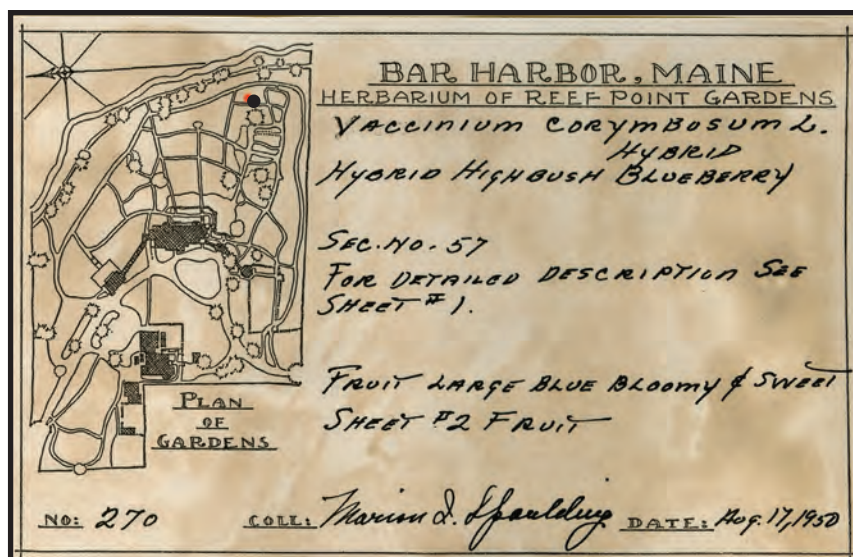 BAR HARBOR, MAINE
HERBARIUM OF REEF POINT GARDENS
VACCINIUM CORYMBOSUM L.
HYBRID
HYBRID HIGHBUSH BLUEBERRY
SEC. NO. 57
FOR DETAILED DESCRIPTION SEE
SHEET #1.
FRUIT LARGE BLUE BLOOMY & SWEET
SHEET #2 FRUIT
PLAN
OF
GARDENS
NO: 270 COLL: Marion I. Spaulding DATE: Aug. 17, 1950